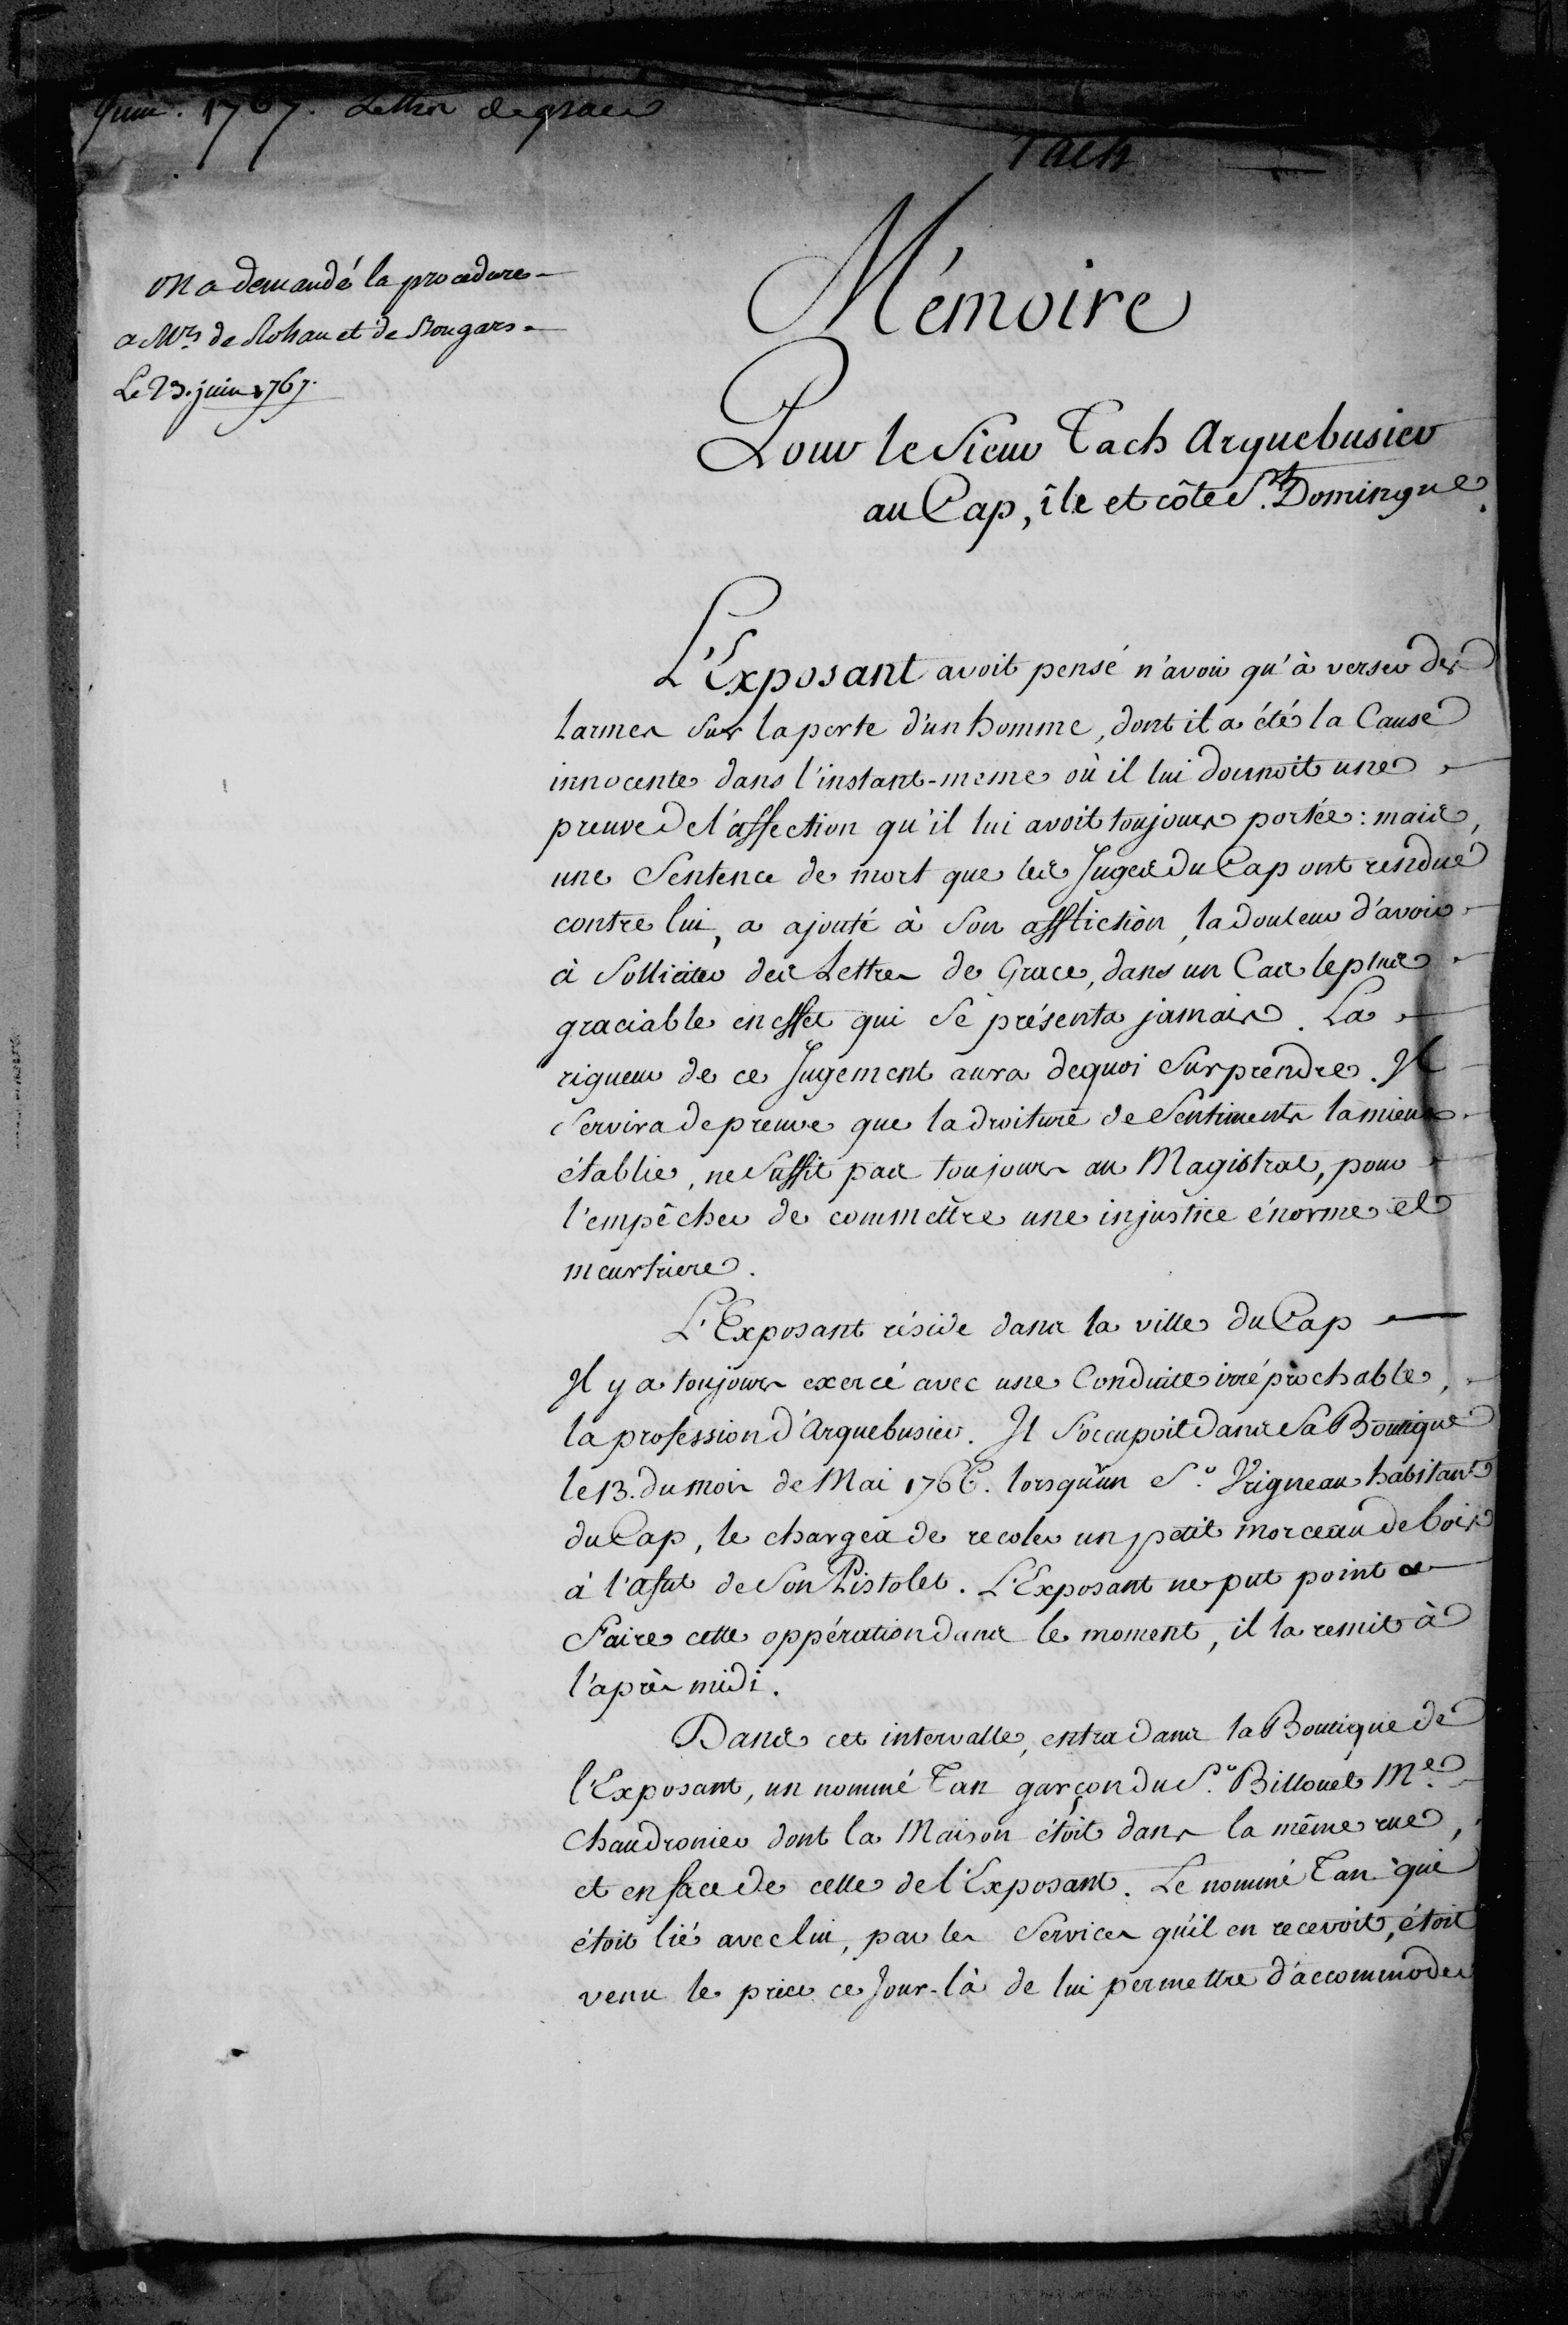 Juin. 1767. Lettres de grace
Tach
on a demandé la procedure
a Mrs de Rohan et de Bongars
Le 23. juin 1767.
Mémoire
Pour le Sieur Tach Arquebusier
au Cap, île et côte St. Domingue.
L'Exposant avoit pensé n'avoir qu'à verser des
larmes sur la perte d'un homme, dont il a été la Cause
innocente dans l'instant-meme où il lui donnoit une
preuve de l'affection qu'il lui avoit toujours portée : mais,
une Sentence de mort que les Juges du Cap ont rendue
contre lui, a ajouté à Son affliction, la douleur d'avoir
à Solliciter des Lettres de Grace, dans un Cas le plus
graciable en effet qui Se présenta jamais. La
rigueur de ce Jugement aura dequoi Surprendre. Il
Servira de preuve que la droiture de Sentiments la mieux
établie, ne Suffit pas toujours au Magistrat, pour
l'empêcher de commettre une injustice énorme et
meurtriere.
L'Exposant réside dans la ville du Cap
Il y a toujours exercé avec une Conduite irréprochable,
la profession d'Arquebusier. Il S'occupoit dans Sa Boutique
le 13. du mois de Mai 1766. lorsqu'un Sr. Vrigneau habitant
du Cap, le chargea de recoler un petit morceau de bois
à l'afut de Son Pistolet. L'Exposant ne put point
Faire cette oppération dans le moment, il la remit à
l'après midi.
Dans cet intervalle, entra dans la Boutique de
l'Exposant, un nommé Tan garçon du Sr. Billouet Me.
Chaudronier dont la Maison étoit dans la même rue,
et en face de celle de l'Exposant. Le nommé Tan qui
étoit lié avec lui, par les Services qu'il en recevoit, étoit
venu le prier ce Jour-là de lui permettre d'accommoder